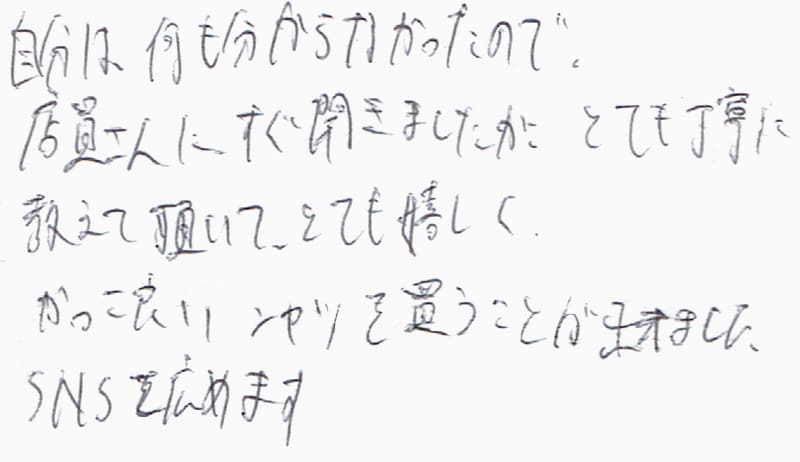 自分は何も分からなかったので、
店員さんにすぐ聞きましたが とても丁寧に
教えて頂いて、とても嬉しく、
かっこ良い シャツを買うことが出来ました、
SNSを広めます